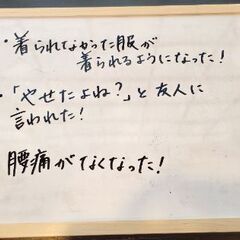 ・着られなかった服が
着られるようになった!
・「やせたよね?」と友人に
言われた!
腰痛がなくなった!